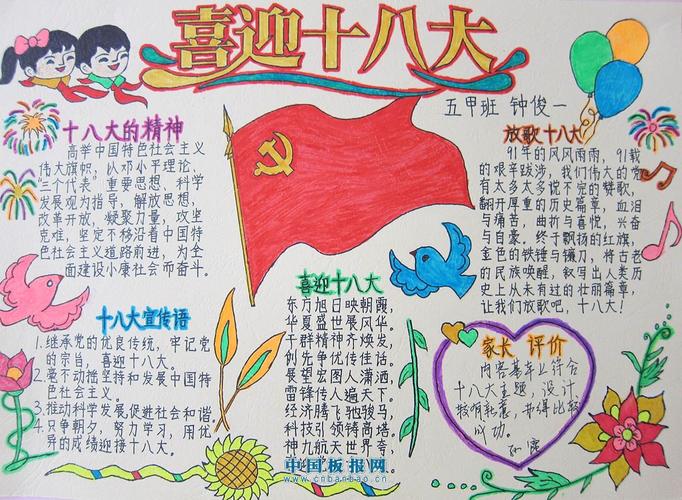 喜迎十八大
五甲班 钟俊一
十八大的精神
高举中国特色社会主义
伟大旗帜，以邓小平理论、
三个代表”重要思想、科学
发展观为指导，解放思想，
改革开放，凝聚力量，攻坚
克难，坚定不移沿着中国特
色社会主义道路前进，为全
面建设小康社会而奋斗。
放歌十八大
91年的风风雨雨，91载
的艰辛跋涉，我们伟大的党
有太多太多说不完的赞歌，
翻开厚重的历史篇章，血泪
与痛苦，曲折与喜悦，兴奋
与自豪。终于飘扬的红旗，
金色的铁锤与镰刀，将古老
的民族唤醒，叙写出人类历
史上从未有过的壮丽篇章，
让我们放歌吧，十八大！
十八大宣传语
1.继承党的优良传统，牢记党
的宗旨，喜迎十八大。
2.毫不动摇坚持和发展中国特
色社会主义。
3.推动科学发展，促进社会和谐
4.只争朝夕，努力学习，用优
异的成绩迎接十八大。
喜迎十八大
东方旭日映朝霞，
华夏盛世展风华。
干群精神齐焕发，
创先争优传佳话。
展望宏图人潇洒，
雷锋传人遍天下。
经济腾飞驰骏马，
科技引领铸高塔。
神九航天世界夸，
家长 评价
内容基本上符合
十八大主题，设计
较有新意，书写比较
成功。
中国板报网
www.cnbanbao.cn